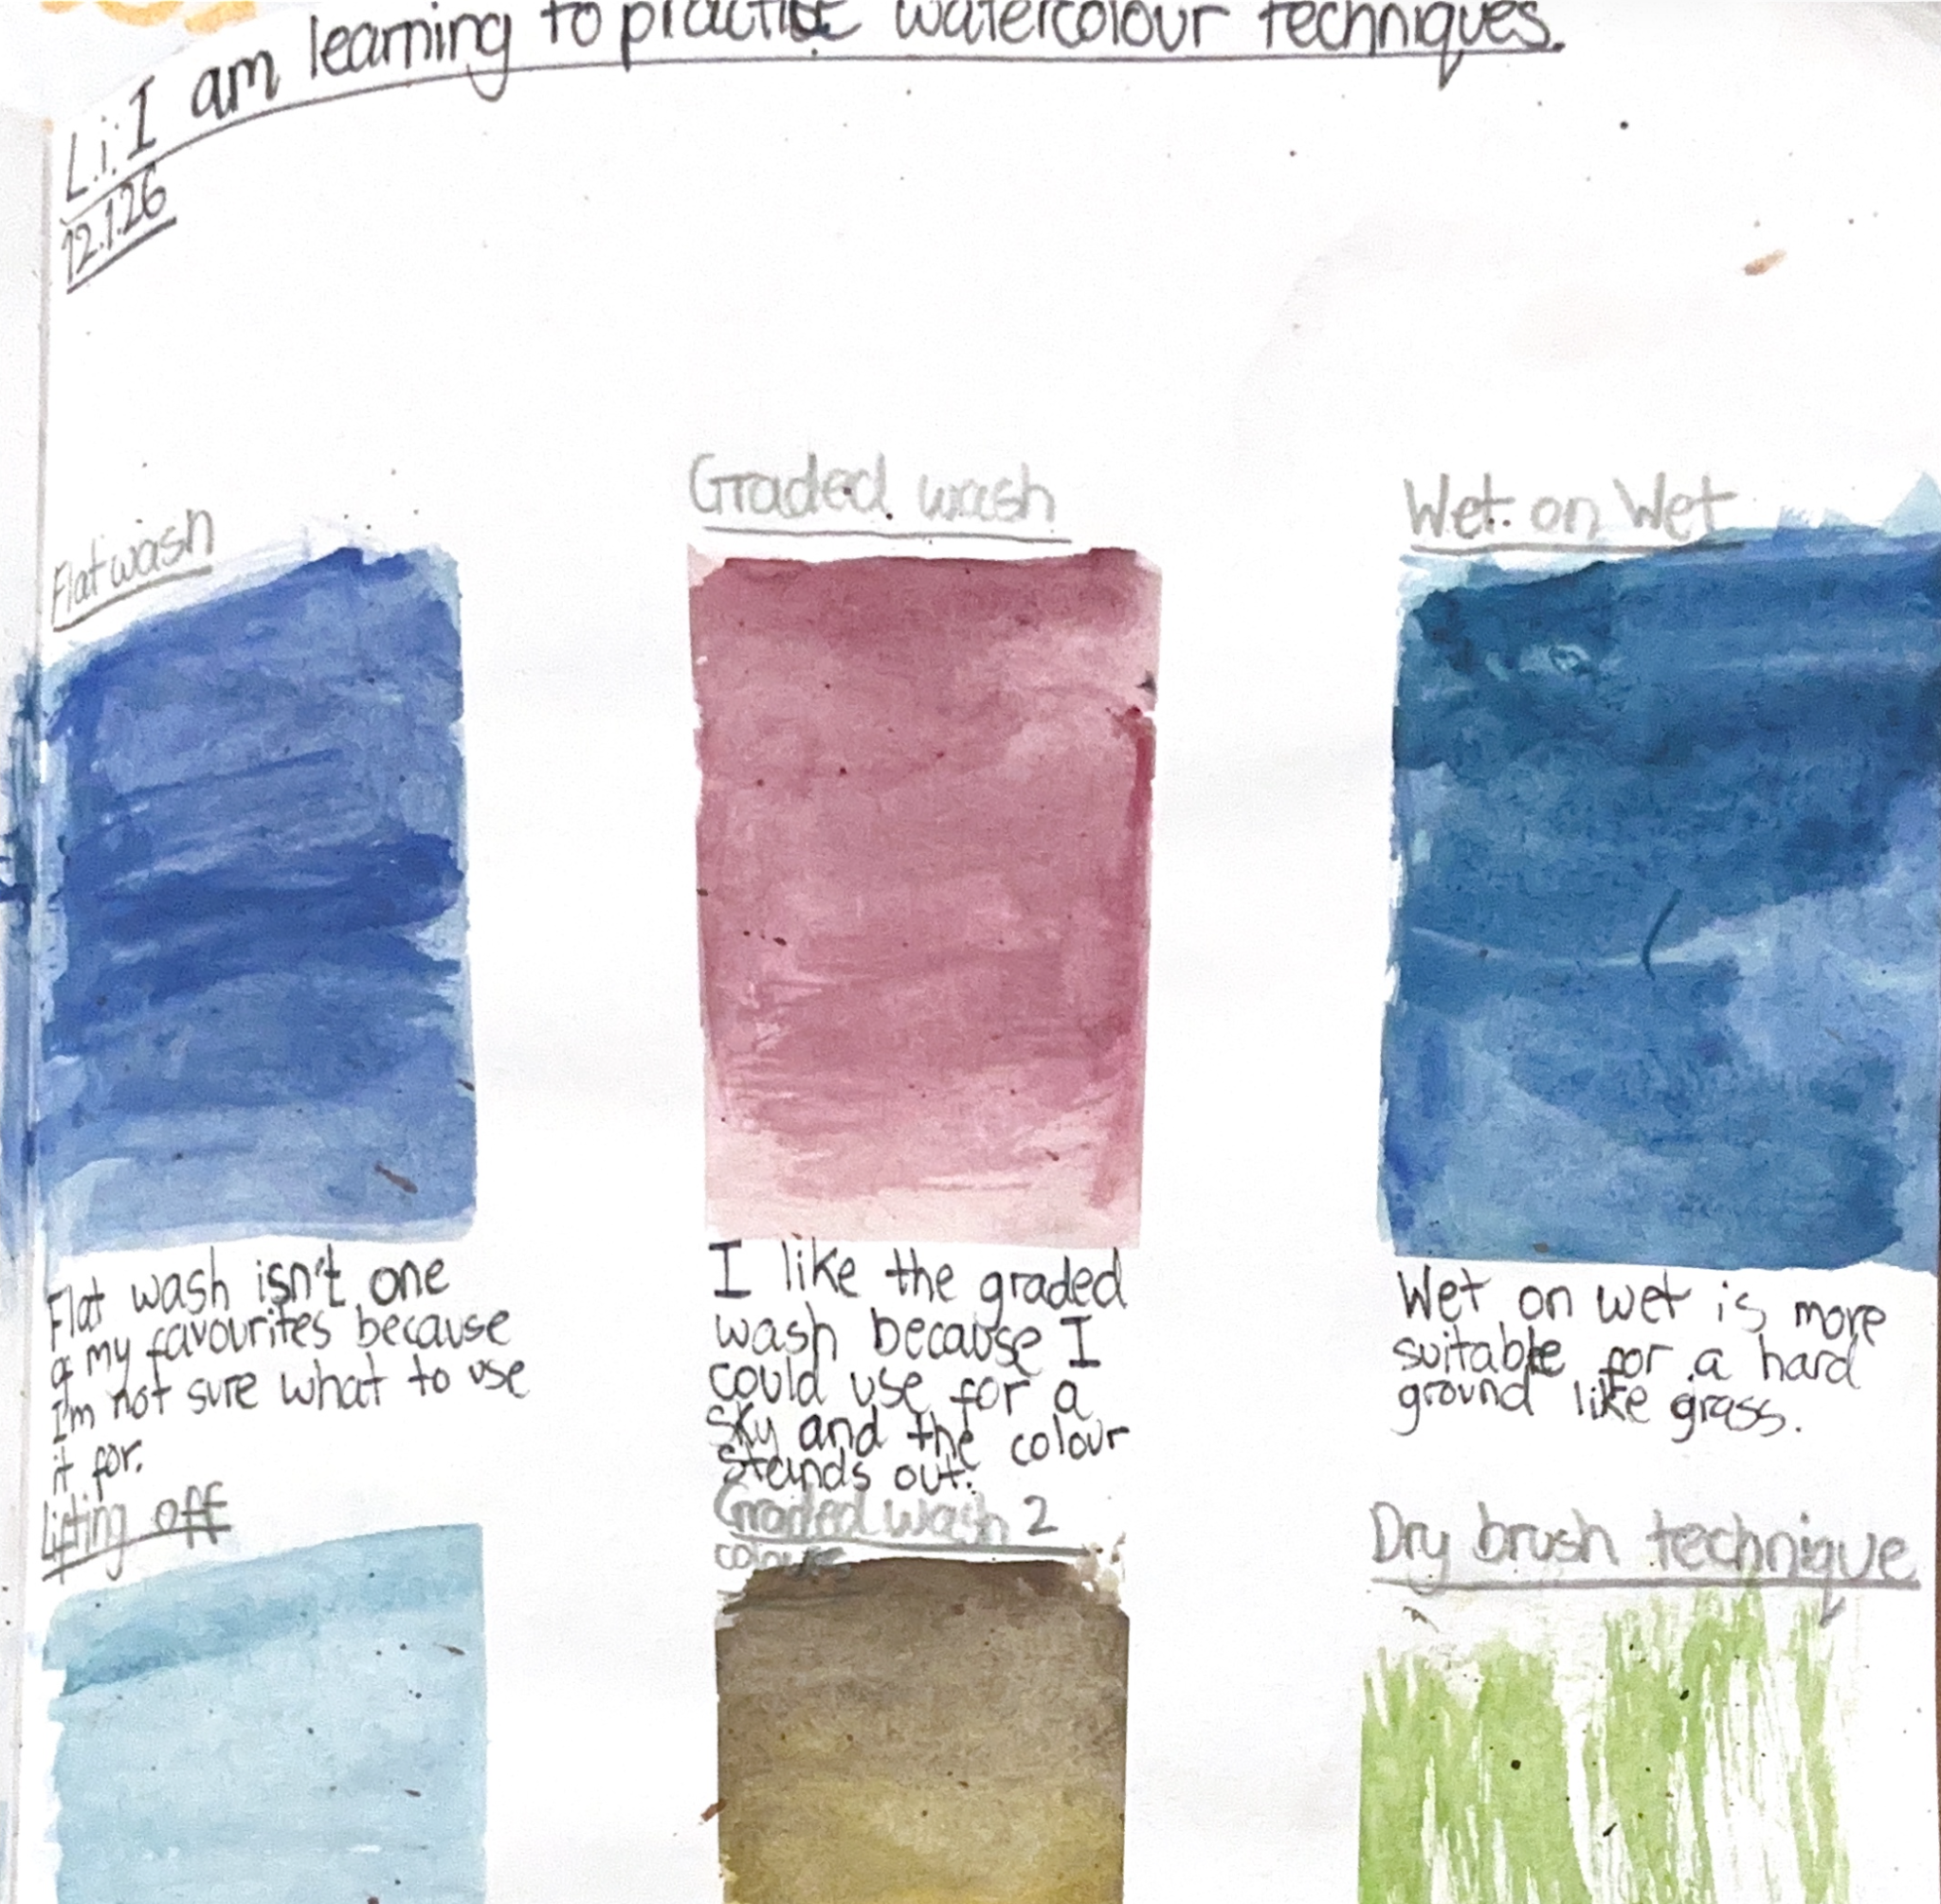 L.i. I am learning to practise watercolour techniques.
12.1.26
Flat wash
Graded wash
Wet on Wet
Flat wash isn't one
of my favourites because
I'm not sure what to use
it for.
I like the graded
wash because I
could use for a
sky and the colour
stands out.
Wet on wet is more
suitable for a hard
ground like grass.
Lifting off
Graded wash 2
colours
Dry brush technique